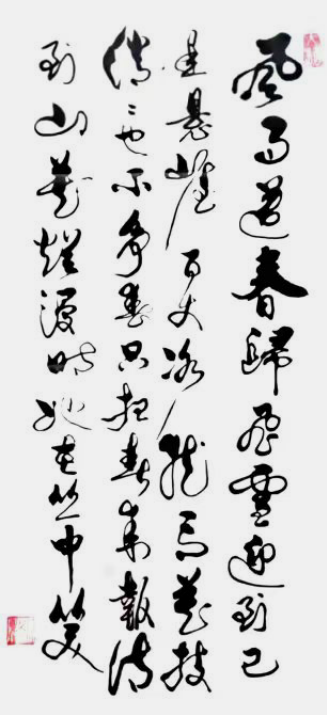 風雨送春歸飛雪迎到已
是懸崖百丈冰猶有花枝
俏〻也不爭春只把春來報待
到山花爛漫時她在丛中笑